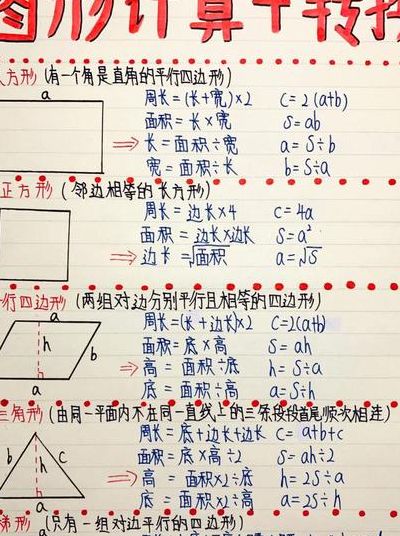 图形计算+转换
长方形 (有一个角是直角的平行四边形)
a
周长=(长+宽)×2 C=2(a+b)
面积=长×宽 S=ab
⇒长=面积÷宽 a=S÷b
宽=面积÷长 b=S÷a
正方形 (邻边相等的长方形)
周长=边长×4 C=4a
面积=边长×边长 S=a²
⇒边长=√面积 a=√S
行四边形 (两组对边分别平行且相等的四边形)
a
周长=(长+边长)×2 C=2(a+b)
h
b
面积=底×高 S=ah
⇒高=面积÷底 h=S÷a
a
底=面积÷高 a=S÷h
三角形 (由同一平面内不在同一直线上的三条段段首尾顺次相连)
周长=底+边长+边长 C=a+b+c
b
c
面积=底×高÷2 S=ah÷2
h
⇒高=面积×2÷底 h=2S÷a
a
底=面积×2÷高 a=2S÷h
梯形 (只有一组对边平行的四边形)